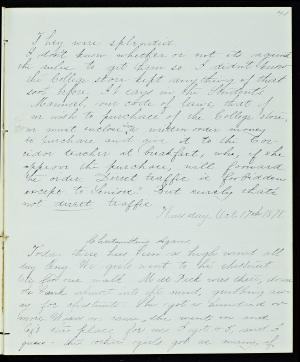 They were splendid.
I don't know whether or not its against
the rules to get them so. I didn't know
the College store kept anything of that
sort before. It says in the Students
Manual, our code of laws, that if
we wish to purchase of the College store,
we must enclose a written order money
to purchase and give it to the Cor-
ridor teacher at breakfast, who, if she
approves the purchase, will forward
the order. Direct traffic is forbidden
except to Seniors." But surely thats
not direct traffic.
Thursday Oct. 17th 1878.
Chestnutting Again
Today there has been a high wind all
day long. We girls went to the chestnut
for our walk. Peck was there, down
almost into the mud, gathering
for chestnuts. She got a hundred or
more. When we came, she went on and
left the place for me. I got and I
guess the other girls got as many, if